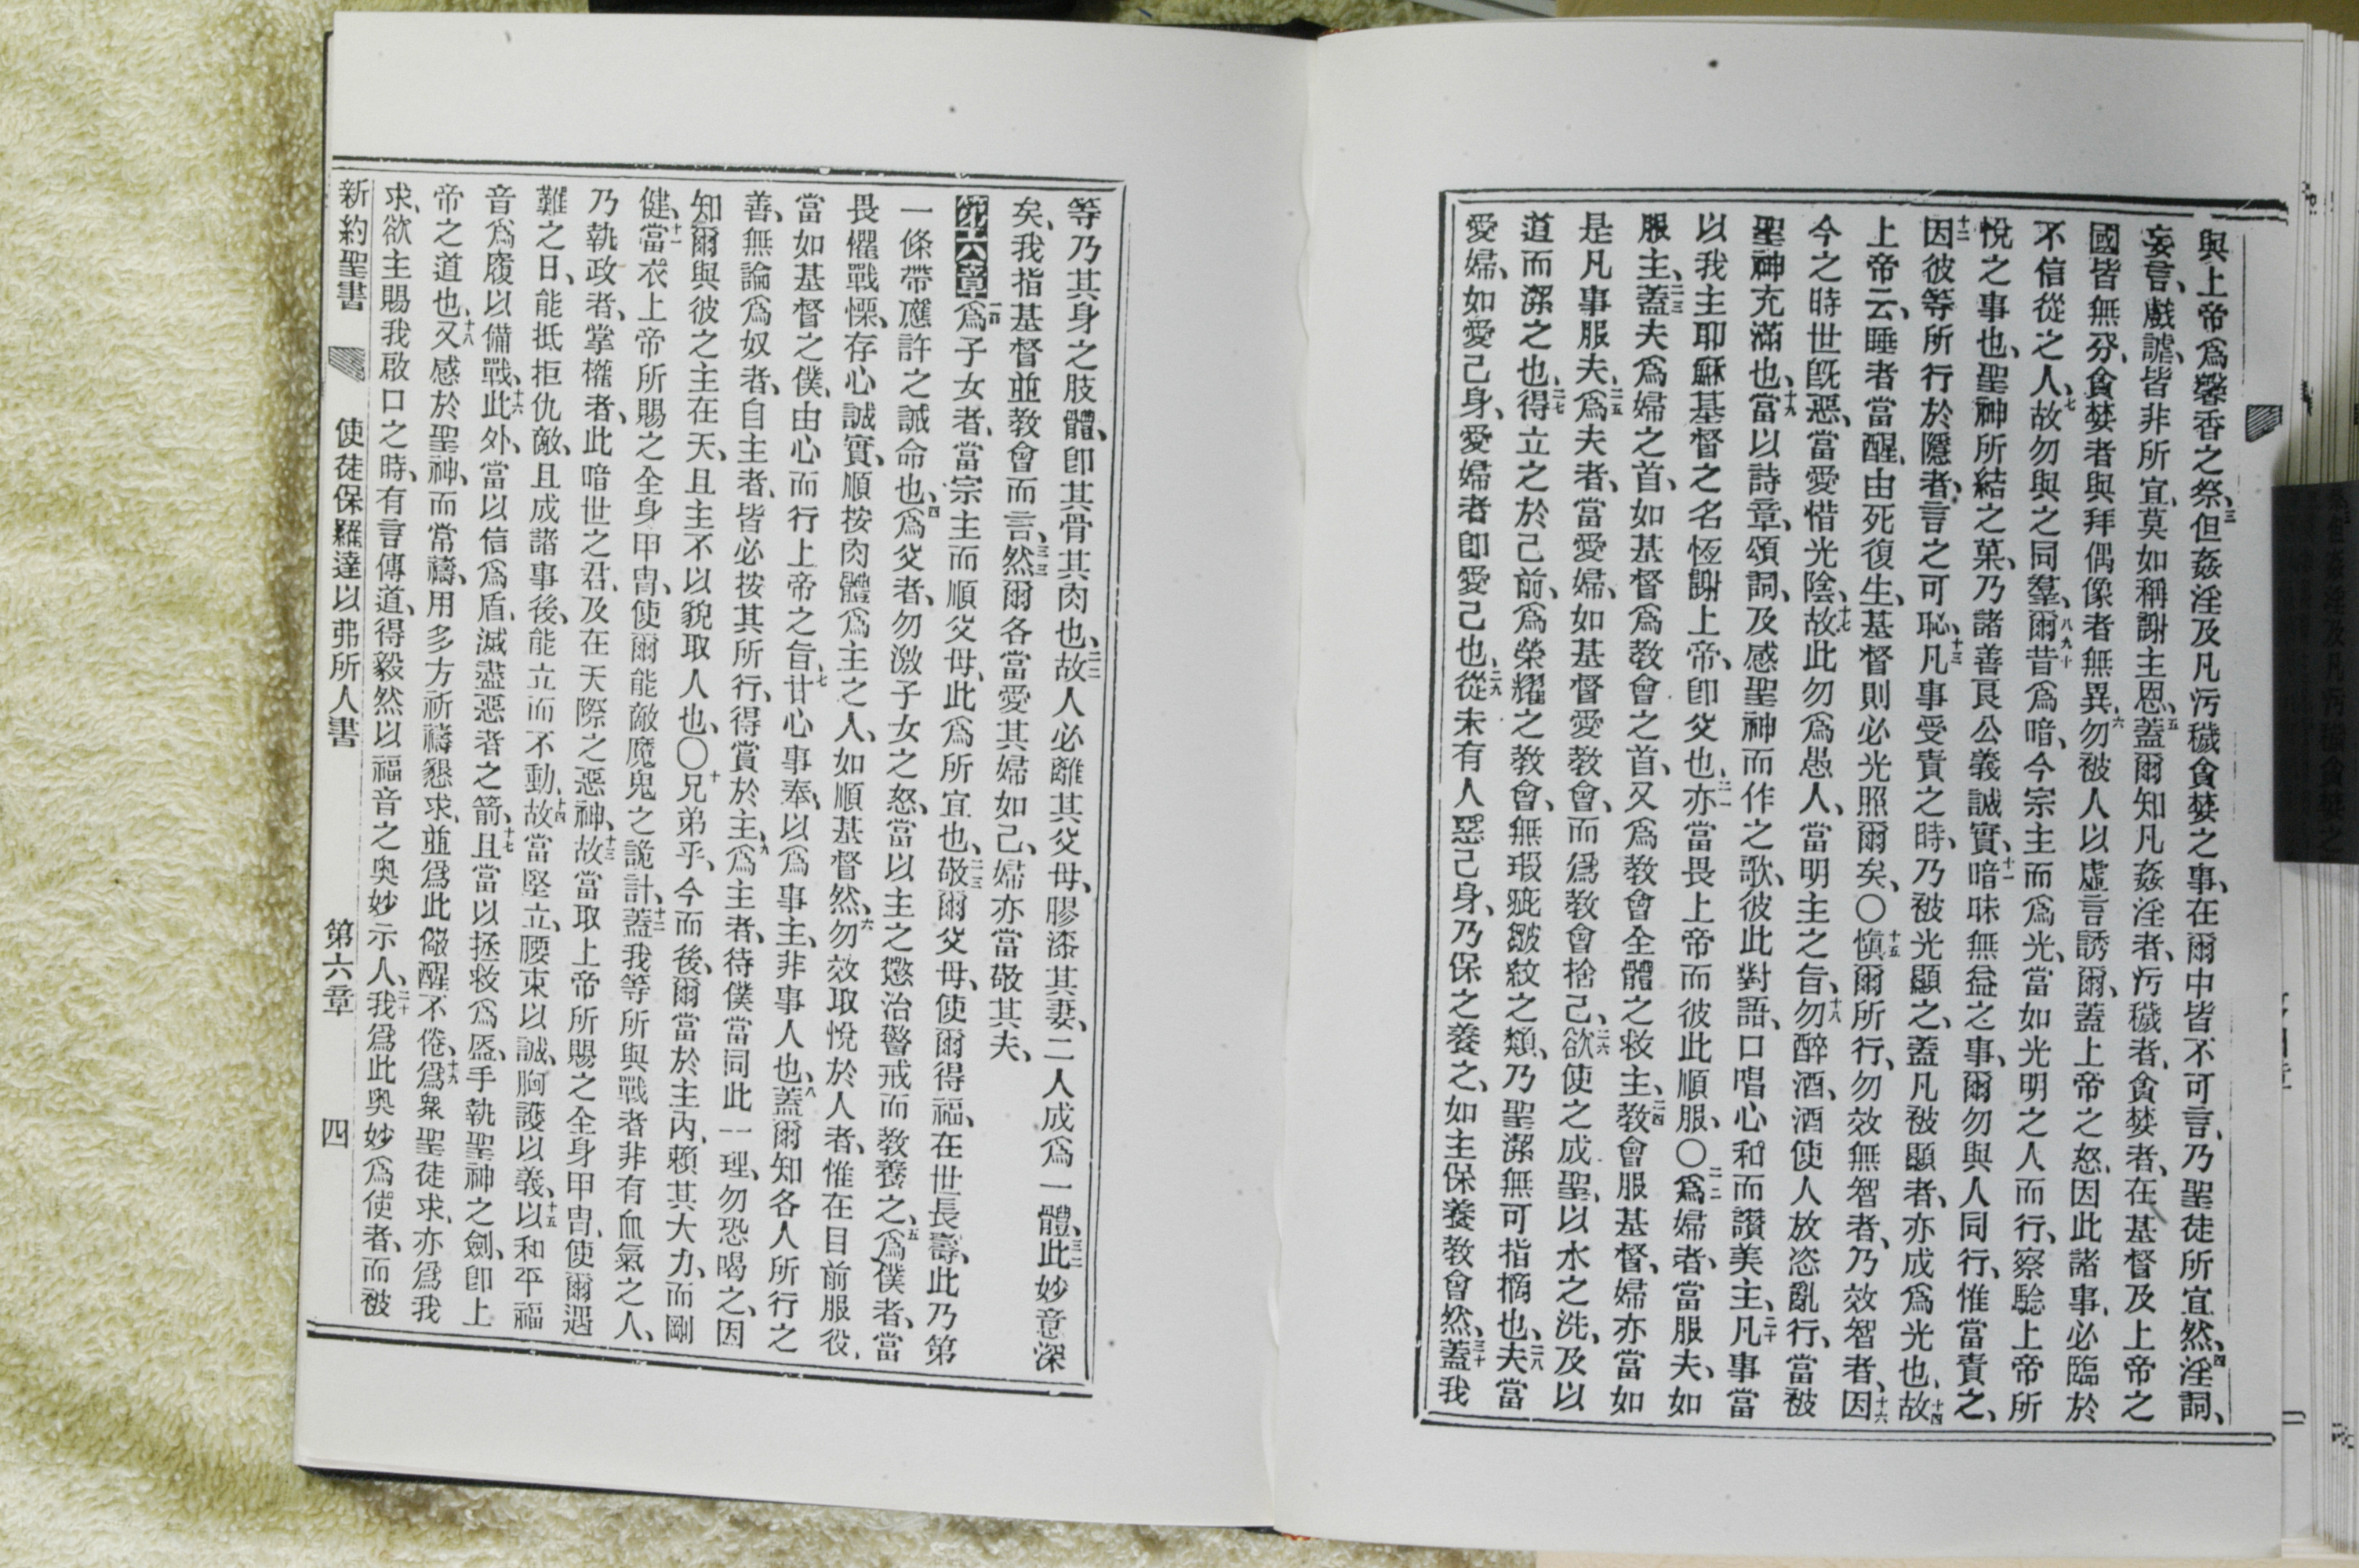 與上帝爲馨香之祭、三但姦淫及凡污穢貪婪之事、在爾中皆不可言、乃聖徒所宜然、四淫詞、
妄言、戲謔、皆非所宜、莫如稱謝主恩、五蓋爾知凡姦淫者、污穢者、貪婪者、在基督及上帝之
國皆無分、貪婪者與拜偶像者無異、六勿被人以虛言誘爾、蓋上帝之怒、因此諸事、必臨於
不信從之人、七故勿與之同羣、八爾昔爲暗、今宗主而爲光、當如光明之人而行、九十察驗上帝所
悅之事也、聖神所結之菓、乃諸善良公義誠實、十一暗昧無益之事、爾勿與人同行、惟當責之、
十二因彼等所行於隱者、言之可恥、十三凡事受責之時、乃被光顯之、蓋凡被顯者、亦成爲光也、十四故
上帝云、睡者當醒、由死復生、基督則必光照爾矣、〇十五愼爾所行、勿效無智者、乃效智者、十六因
今之時世旣惡、當愛惜光陰、十七故此勿爲愚人、當明主之旨、十八勿醉酒、酒使人放恣亂行、當被
聖神充滿也、十九當以詩章、頌詞、及感聖神而作之歌、彼此對語、口唱心和而讚美主、二十凡事當
以我主耶穌基督之名恆謝上帝、卽父也、二一亦當畏上帝而彼此順服、〇二二爲婦者、當服夫、如
服主、二三蓋夫爲婦之首、如基督爲敎會之首、又爲敎會全體之救主、二四敎會服基督、婦亦當如
是凡事服夫、二五爲夫者、當愛婦、如基督愛敎會、而爲敎會捨己、二六欲使之成聖、以水之洗、及以
道而潔之也、二七得立之於己前、爲榮耀之敎會、無瑕疵皺紋之類、乃聖潔無可指摘也、二八夫當
愛婦、如愛己身、愛婦者卽愛己也、二九從未有人惡己身、乃保之養之、如主保養敎會然、三十蓋我
等乃其身之肢體、卽其骨其肉也、三一故人必離其父母、膠漆其妻、二人成爲一體、三二此妙意深
矣、我指基督並敎會而言、三三然爾各當愛其婦如己、婦亦當敬其夫、
第六章 一爲子女者、當宗主而順父母、此爲所宜也、二三敬爾父母、使爾得福、在世長壽、此乃第
一條帶應許之誡命也、四爲父者、勿激子女之怒、當以主之懲治警戒而敎養之、五爲僕者、當
畏懼戰慄、存心誠實、順按肉體爲主之人、如順基督然、六勿效取悅於人者、惟在目前服役、
當如基督之僕、由心而行上帝之旨、七甘心事奉、以爲事主、非事人也、八蓋爾知各人所行之
善、無論爲奴者、自主者、皆必按其所行、得賞於主、九爲主者、待僕當同此一理、勿恐喝之、因
知爾與彼之主在天、且主不以貌取人也、〇十兄弟乎、今而後、爾當於主內、賴其大力、而剛
健、十一當衣上帝所賜之全身甲冑、使爾能敵魔鬼之詭計、十二蓋我等所與戰者、非有血氣之人、
乃執政者、掌權者、此暗世之君、及在天際之惡神、十三故當取上帝所賜之全身甲冑、使爾遇
難之日、能抵拒仇敵、且成諸事後、能立而不動、十四故當堅立、腰束以誠、胸護以義、十五以和平福
音爲履以備戰、十六此外、當以信爲盾、滅盡惡者之箭、十七且當以拯救爲盔、手執聖神之劍、卽上
帝之道也、十八又感於聖神、而常禱、用多方祈禱懇求、並爲此儆醒不倦、十九爲衆聖徒求、亦爲我
求、欲主賜我啟口之時、有言傳道、得毅然以福音之奧妙示人、二十我爲此奧妙爲使者、而被
新約聖書 使徒保羅達以弗所人書 第六章 四